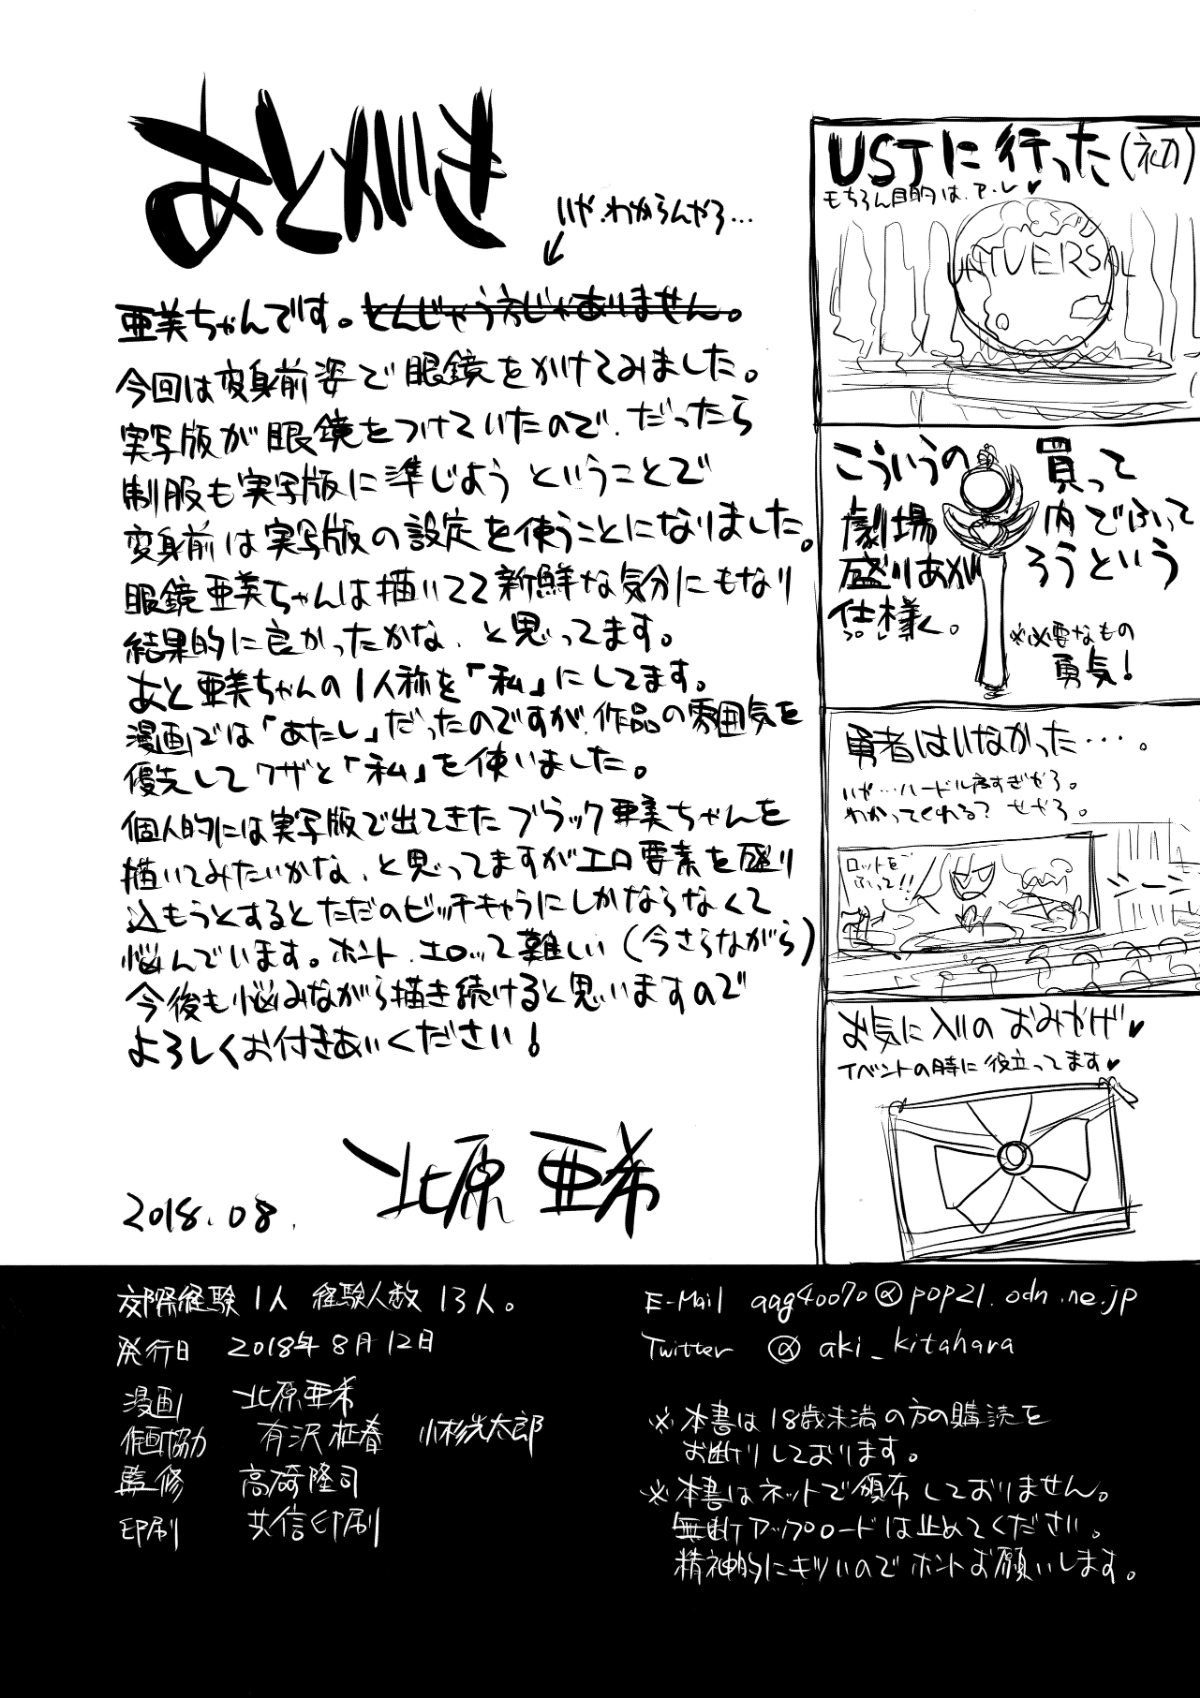 あとがき
いや、わからんやろ…
亜美ちゃんです。とんじゃう方じゃありません。
今回は変身前姿で眼鏡をかけてみました。
実写版が眼鏡をつけていたので、だったら
制服も実写版に準じようということで
変身前は実写版の設定を使うことになりました。
眼鏡亜美ちゃんは描いてて新鮮な気分にもなり
結果的に良かったかな、と思ってます。
あと亜美ちゃんの1人称を「私」にしてます。
漫画では「あたし」だったのですが、作品の雰囲気を
優先してワザと「私」を使いました。
個人的には実写版で出てきたブラック亜美ちゃんを
描いてみたいかな、と思ってますがエロ要素を盛り
込もうとするとただのビッチキャラにしかならなくて
悩んでいます。ホント、エロって難しい(今さらながら)
今後も悩みながら描き続けると思いますので
よろしくお付きあいください!
2018.08.
北原亜希
USJに行った(初)
もちろん目的は、ア・レ♥
UNIVERSAL
こういうの買って
劇場内でふって
盛りあがろうという
仕様。
※必要なもの
勇気!
勇者はいなかった・・・。
いや…ハードル高すぎやろ。
わかってくれる?せやろ。
ロッドを
ふって!!
シーン
お気に入りのおみやげ♥
イベントの時に役立ってます♥
交際経験 1人 経験人数 13人。
発行日 2018年8月12日
漫画 北原亜希
作画協力 有沢 小杉光太郎
監修 高崎隆司
印刷 共信印刷
E-Mail aag40070@pop21.odn.ne.jp
Twitter @aki_kitahara
※本書は18歳未満の方の購読を
お断りしております。
※本書はネットで頒布しておりません。
無断アップロードは止めてください。
精神的にキツいのでホントお願いします。